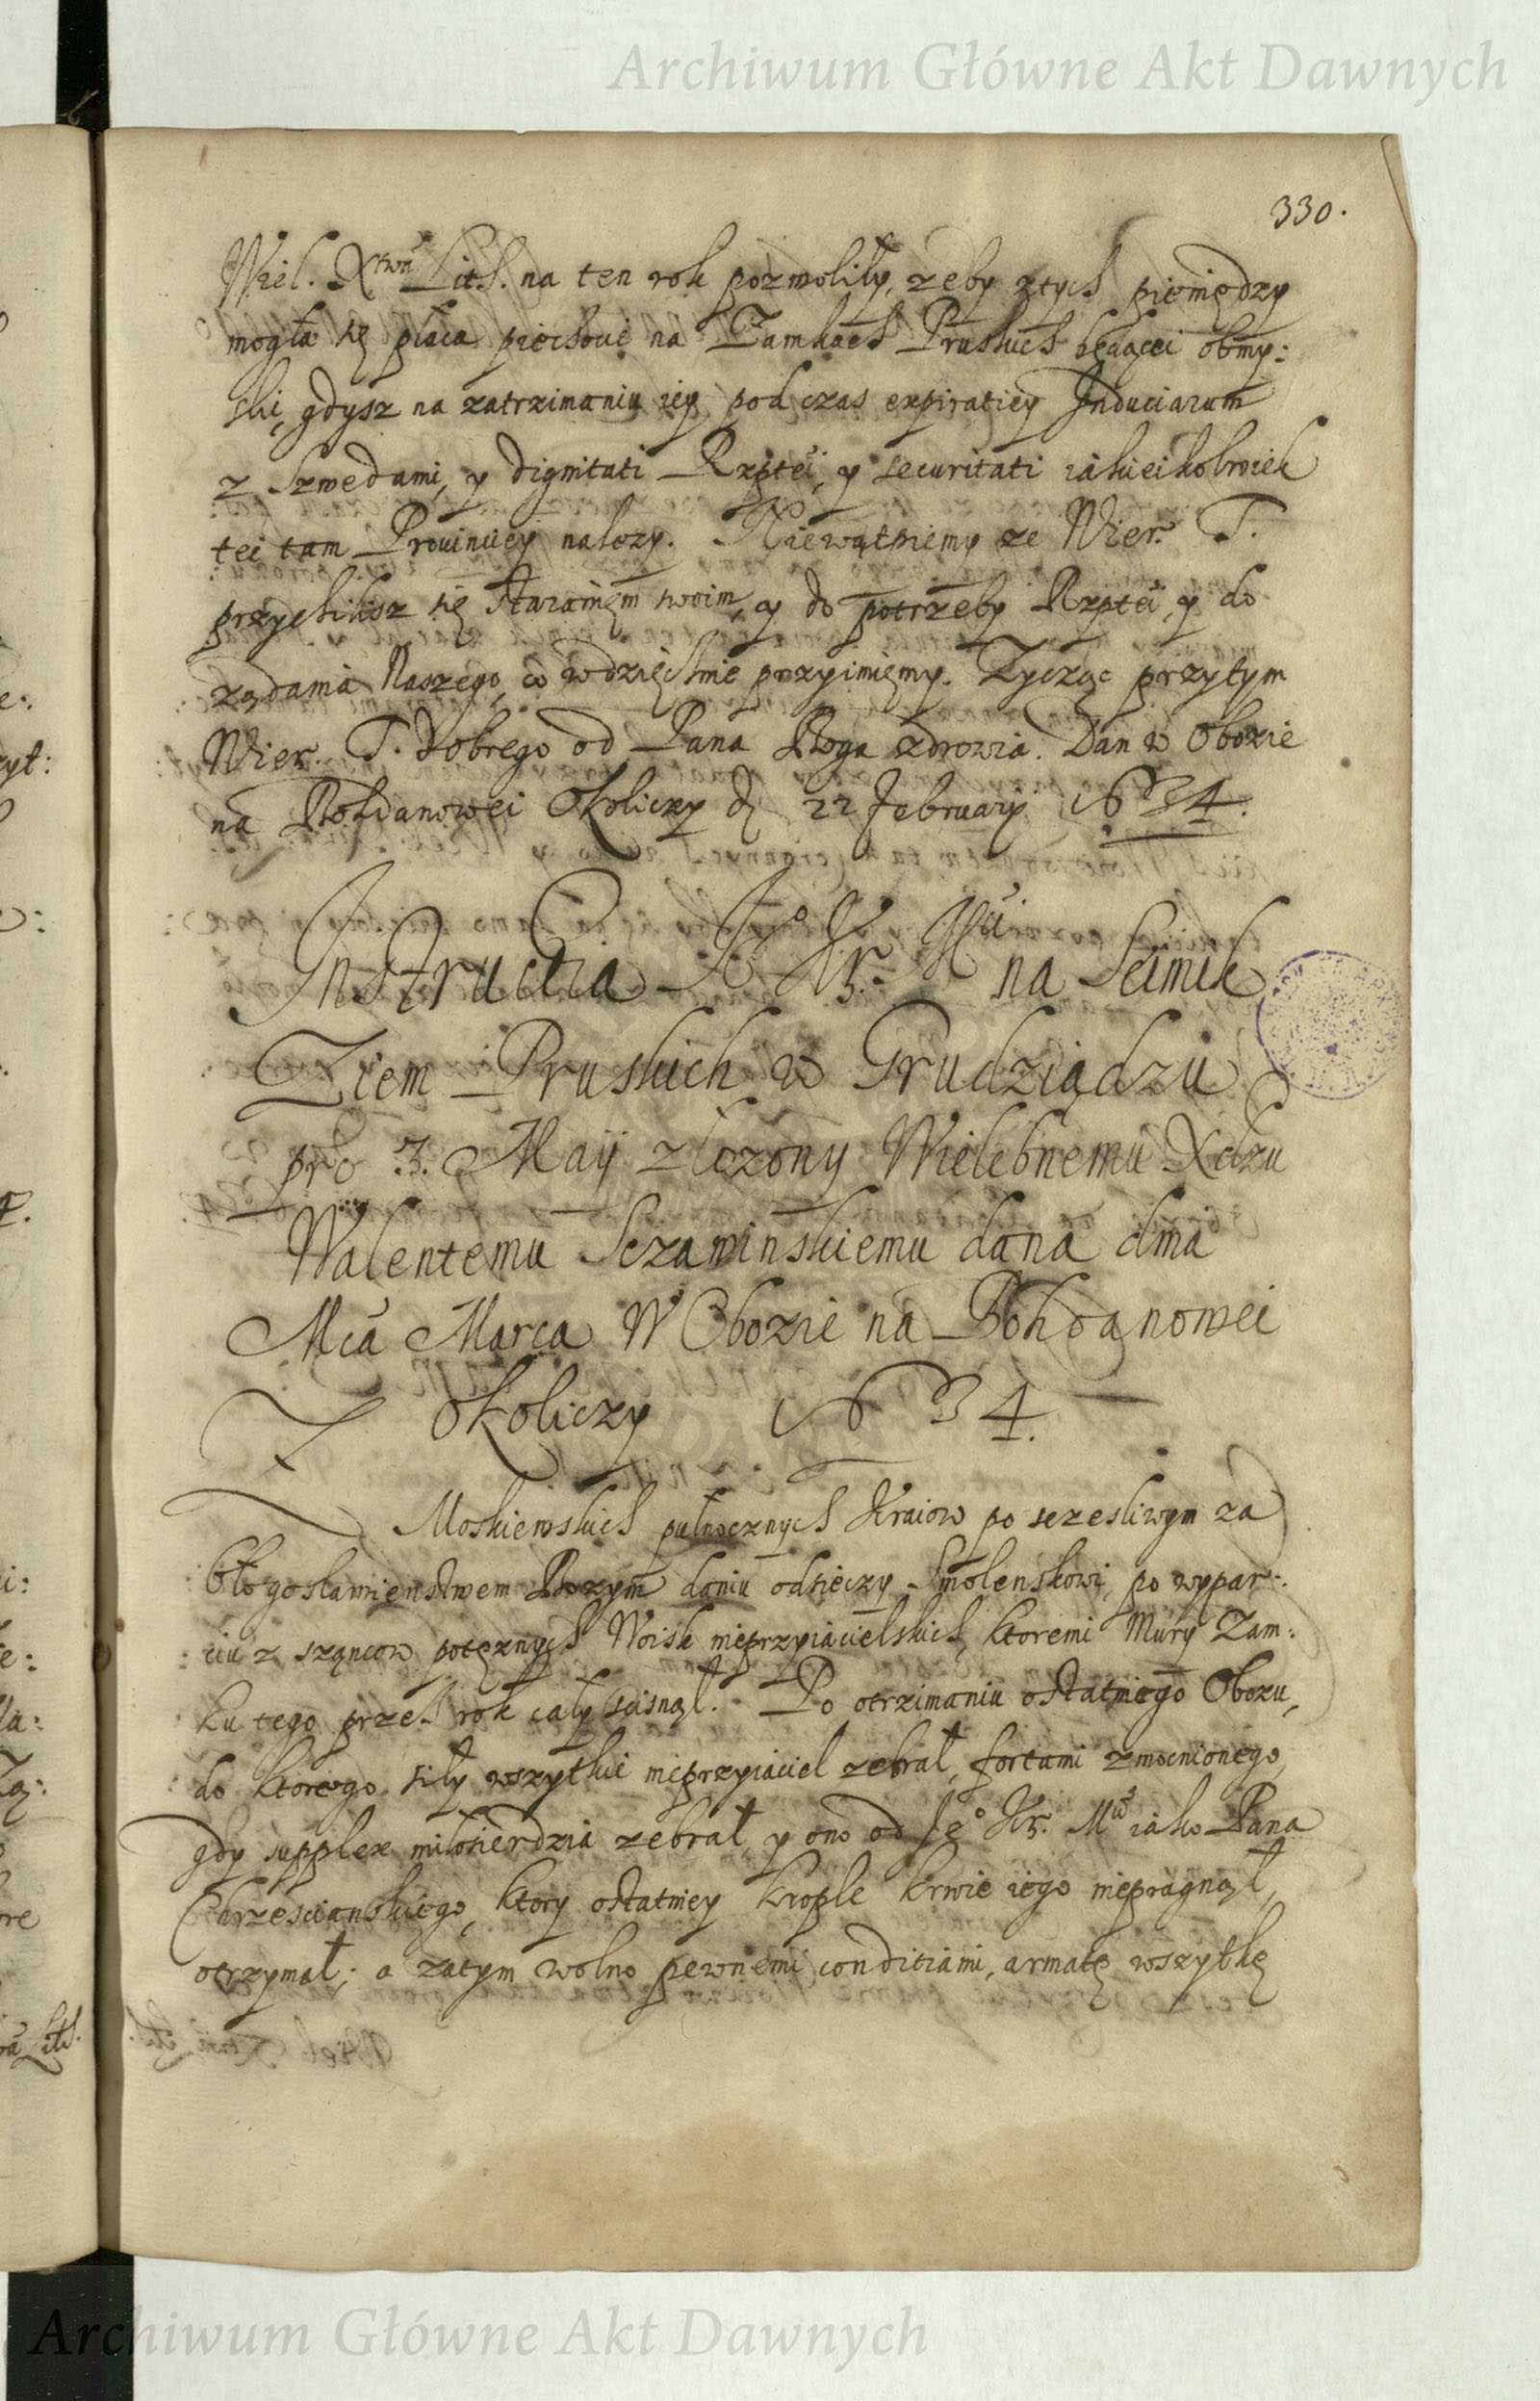 Archiwum Główne Akt Dawnych
330.
Wiel. Xtwá Lith. na ten rok pozwoliły, zeby ztych pieniędzy
mogła się płaca piechocie na Zamkach Pruskich będącei obmy:
slić, gdysz na zatrzimaniu iey pod czas expiratiey Induciarum
z Szwedami, y dignitati Rzptei, y securitati iakieikolwiek
tei tam Prouinciey nalezy. Niewątpiemy ze Wier. T.
przychilisz się staraniem swoim, y do potrzeby Rzptei, y do
ządania Naszego, co wdzięcznie przyimięmy. Zycząc przytym
Wier. T. dobrego od Pana Boga zdrowia. Dan w Obozie
na Bohdanowei Okoliczy d 22 February 1634.
Instructia Je° Kr. Mći na Seimik
Ziem Pruskich w Grudziądzu
pro 3. Maii złożony Wielebnemu Xdzu
Walentemu Sczawinskiemu dana dnia
Mca Marca W Obozie na Bohdanowei
Okoliczy 1634.
Z Moskiewskich pułnocznych Kraiow po sczesliwym za
błogosławienstwem Bozym daniu odsieczy Smolenskowi, po wypar:
ciu z sząncow potęznych Woisk nieprzyiacielskich, ktoremi Mury Zam:
ku tego przes rok cały scisnął. Po otrzimaniu ostatniego Obozu,
do ktorego siły wszytkie nieprzyiaciel zebrał, fortami zmocnionego,
gdy supplex miłosierdzia zebrał, y ono od Je° Kr. Mći iako Pana
Chrzescianskiego, ktory ostatniey krople krwie iego niepragnął,
otrzymał; a zatym wolno pewnemi conditiami, armatę wszytkę
Archiwum Główne Akt Dawnych